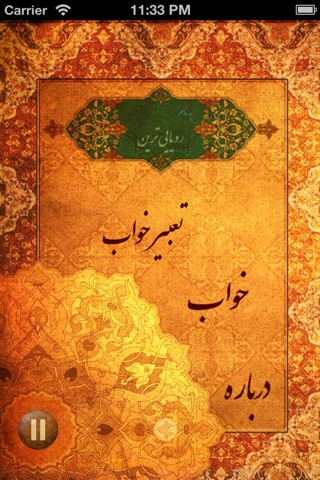 Carrier 11:33 PM
برنامه
رویایی ترین
تعبیر خواب
خواب
درباره